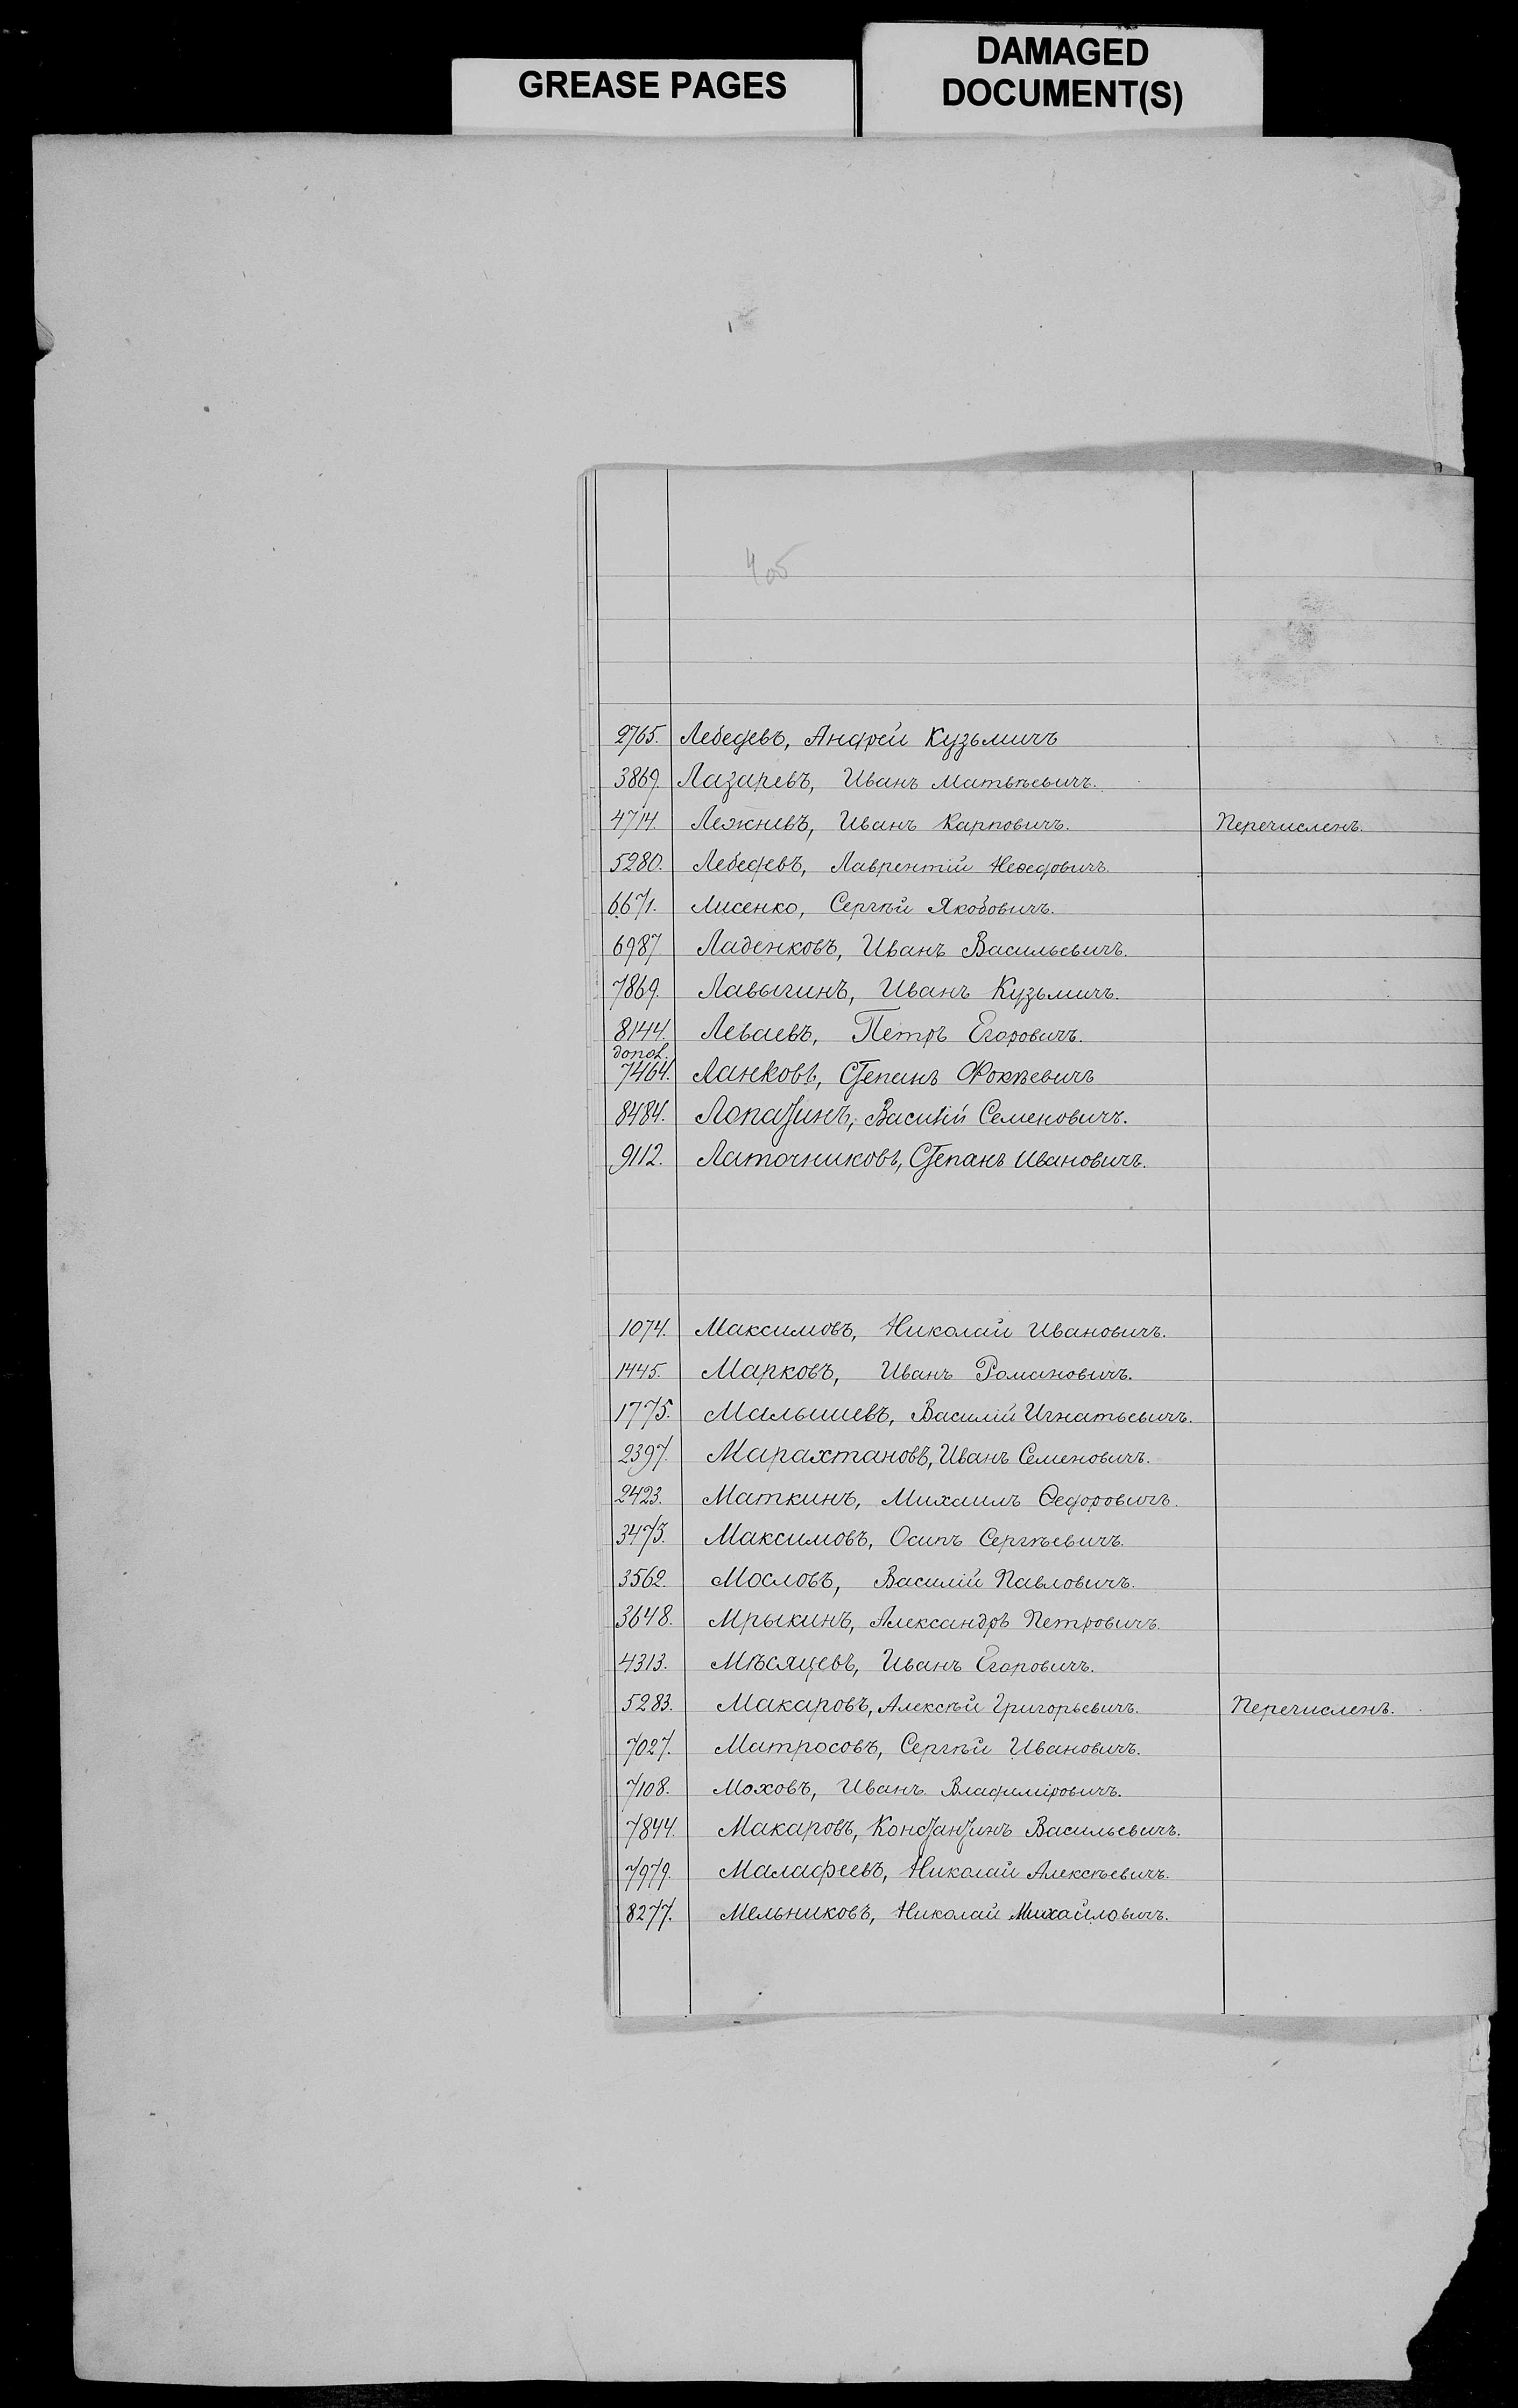 GREASE PAGES
DAMAGED
DOCUMENT(S)
4 об
2765. Лебедевъ, Андрей Кузьмичъ
3869. Лазаревъ, Иванъ Матвѣевичъ.
4714. Лежневъ, Иванъ Карповичъ. Перечисленъ.
5280. Лебедевъ, Лаврентій Неѳедовичъ.
6671. Лисенко, Сергѣй Якововичъ.
6987 Ладенковъ, Иванъ Васильевичъ.
7869. Лавыгинъ, Иванъ Кузьмичъ.
8144. Леваевъ, Петръ Егоровичъ.
допол.
7464. Ланковъ, Степанъ Фокѣевичъ
8484. Лопатинъ, Василій Семеновичъ.
9112. Латочниковъ, Степанъ Ивановичъ.
1074. Максимовъ, Николай Ивановичъ.
1445. Марковъ, Иванъ Романовичъ.
1775. Малышевъ, Василій Игнатьевичъ.
2397. Марахтановъ, Иванъ Семеновичъ.
2423. Маткинъ, Михаилъ Ѳедоровичъ.
3475. Максимовъ, Осипъ Сергѣевичъ.
3562. Мословъ, Василій Павловичъ.
3648. Мрыкинъ, Александръ Петровичъ.
4313. Мѣсяцевъ, Иванъ Егоровичъ.
5283. Макаровъ, Алексѣй Григорьевичъ. Перечисленъ.
7027. Матросовъ, Сергѣй Ивановичъ.
7108. Моховъ, Иванъ Владиміровичъ.
7844. Макаровъ, Константинъ Васильевичъ.
7979. Малафеевъ, Николай Алексѣевичъ.
8277. Мельниковъ, Николай Михайловичъ.